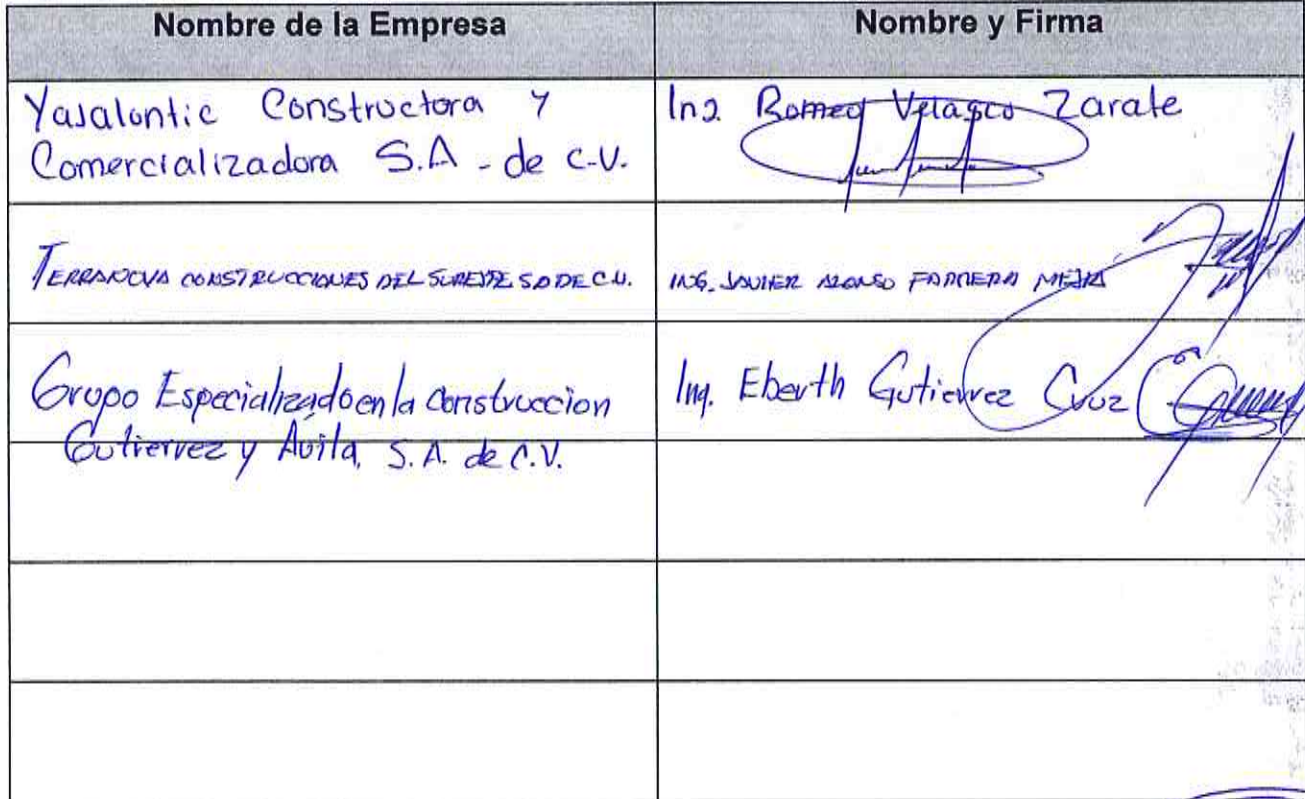 Nombre de la Empresa
Nombre y Firma
Yasalontic Constructora y
Comercializadora S.A - de C.V.
Ing. Romeo Velasco Zarate
TERRANOVA CONSTRUCCIONES DEL SURESTE SA DE C.V.
ING. JAVIER ALONSO FARRERA MEJIA
Grupo Especializado en la construccion
Gutierrez y Avila, S.A. de C.V.
Ing. Eberth Gutierrez Cruz